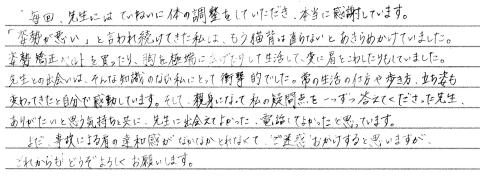 毎回、先生にはていねいに体の調整をしていただき、本当に感謝しています。
「姿勢が悪い」と言われ続けてきた私は、もう猫背は直らないとあきらめかけていました。
姿勢矯正ベルトを買ったり、胸を極端に広げたりして生活して、変に肩をこわしたりもしていました。
先生との出会いは、そんな知識のない私にとって衝撃的でした。常の生活の仕方や歩き方、立ち姿も
変わってきたと自分で感動しています。そして、親身になって私の疑問点を一つずつ答えてくださった先生、
ありがたいと思う気持ちと共に、先生に出会えてよかった、電話してよかったと思っています。
まだ、事故による首の違和感がなかなかとれなくて、ご迷惑おかけすると思いますが、
これからもどうぞよろしくお願いします。